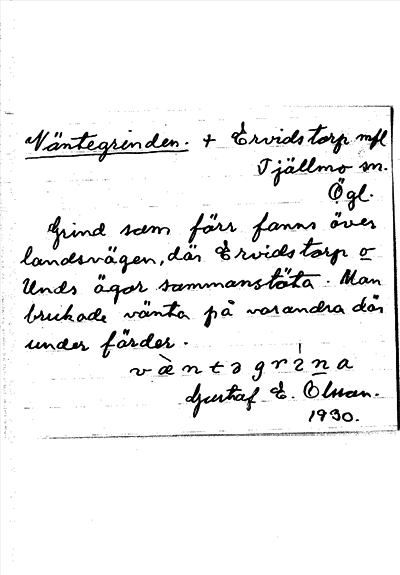 Väntegrinden. + Ervidstorp mfl
Tjällmo sn.
Ögl.
Grind som förr fanns över
landsvägen, där Ervidstorp o
Unds ägor sammanstöta. Man
brukade vänta på varandra där
under färder.
væntəgrina
Gustaf E. Olsson.
1930.